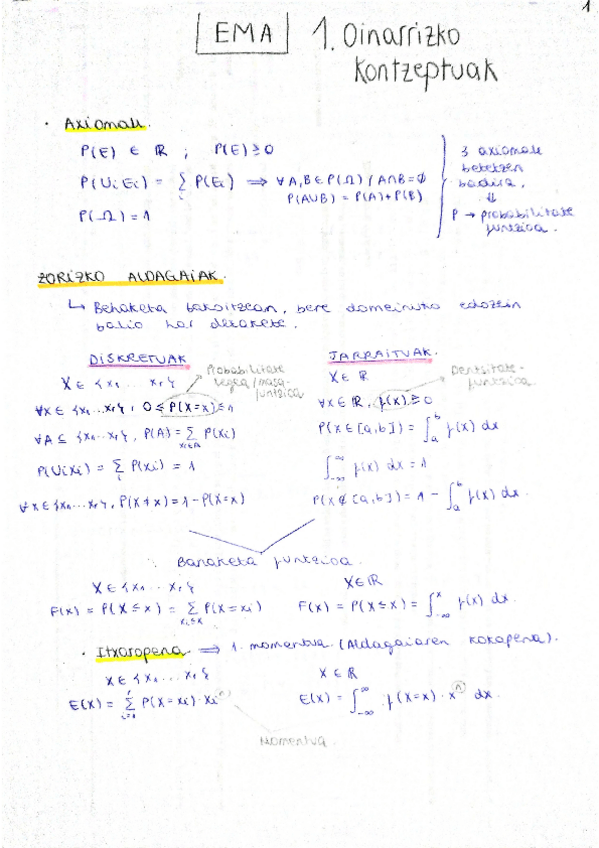 1
EMA 1. Oinarrizko
Kontzeptuak
· Axiomak.
P(E) ∈ ℝ ; P(E) ≥ 0
P(∪i Ei) = Σi P(Ei) ⟹ ∀A,B ∈ P(Ω) / A∩B = ∅
P(A∪B) = P(A)+P(B)
P(Ω) = 1
3 axiomak
betetzen
badira,
⇓
P → probabilitate
funtzioa.
ZORIZKO ALDAGAIAK.
↳ Behaketa bakoitzean, bere domeinuko edozein
balio har dezakete.
DISKRETUAK
Probabilitate
legea/masa-
funtzioa
X ∈ {x1 ... xr}
∀x ∈ {x1 ... xr}, 0 ≤ P(X=x) ≤ 1
∀A ⊆ {x1 ... xr}, P(A) = Σ xi∈A P(xi)
P(∪i xi) = Σi P(xi) = 1
∀x ∈ {x1 ... xr}, P(X≠x) = 1 - P(X=x)
JARRAITUAK.
Dentsitate-
funtzioa
X ∈ ℝ
∀x ∈ ℝ, f(x) ≥ 0
P(X ∈ [a,b]) = ∫ab f(x) dx
∫-∞∞ f(x) dx = 1
P(X ∉ [a,b]) = 1 - ∫ab f(x) dx.
Banaketa funtzioa.
X ∈ {x1 ... xr}
F(x) = P(X ≤ x) = Σ xi≤x P(X=xi)
X ∈ ℝ
F(x) = P(X ≤ x) = ∫-∞x f(x) dx.
· Itxaropena ⟹ 1. momentua. (Aldagaiaren kokapena).
X ∈ {x1 ... xr}
E(X) = Σ i=1 r P(X=xi)·xi^n
X ∈ ℝ
E(X) = ∫-∞∞ f(X=x)·x^n dx.
Momentua